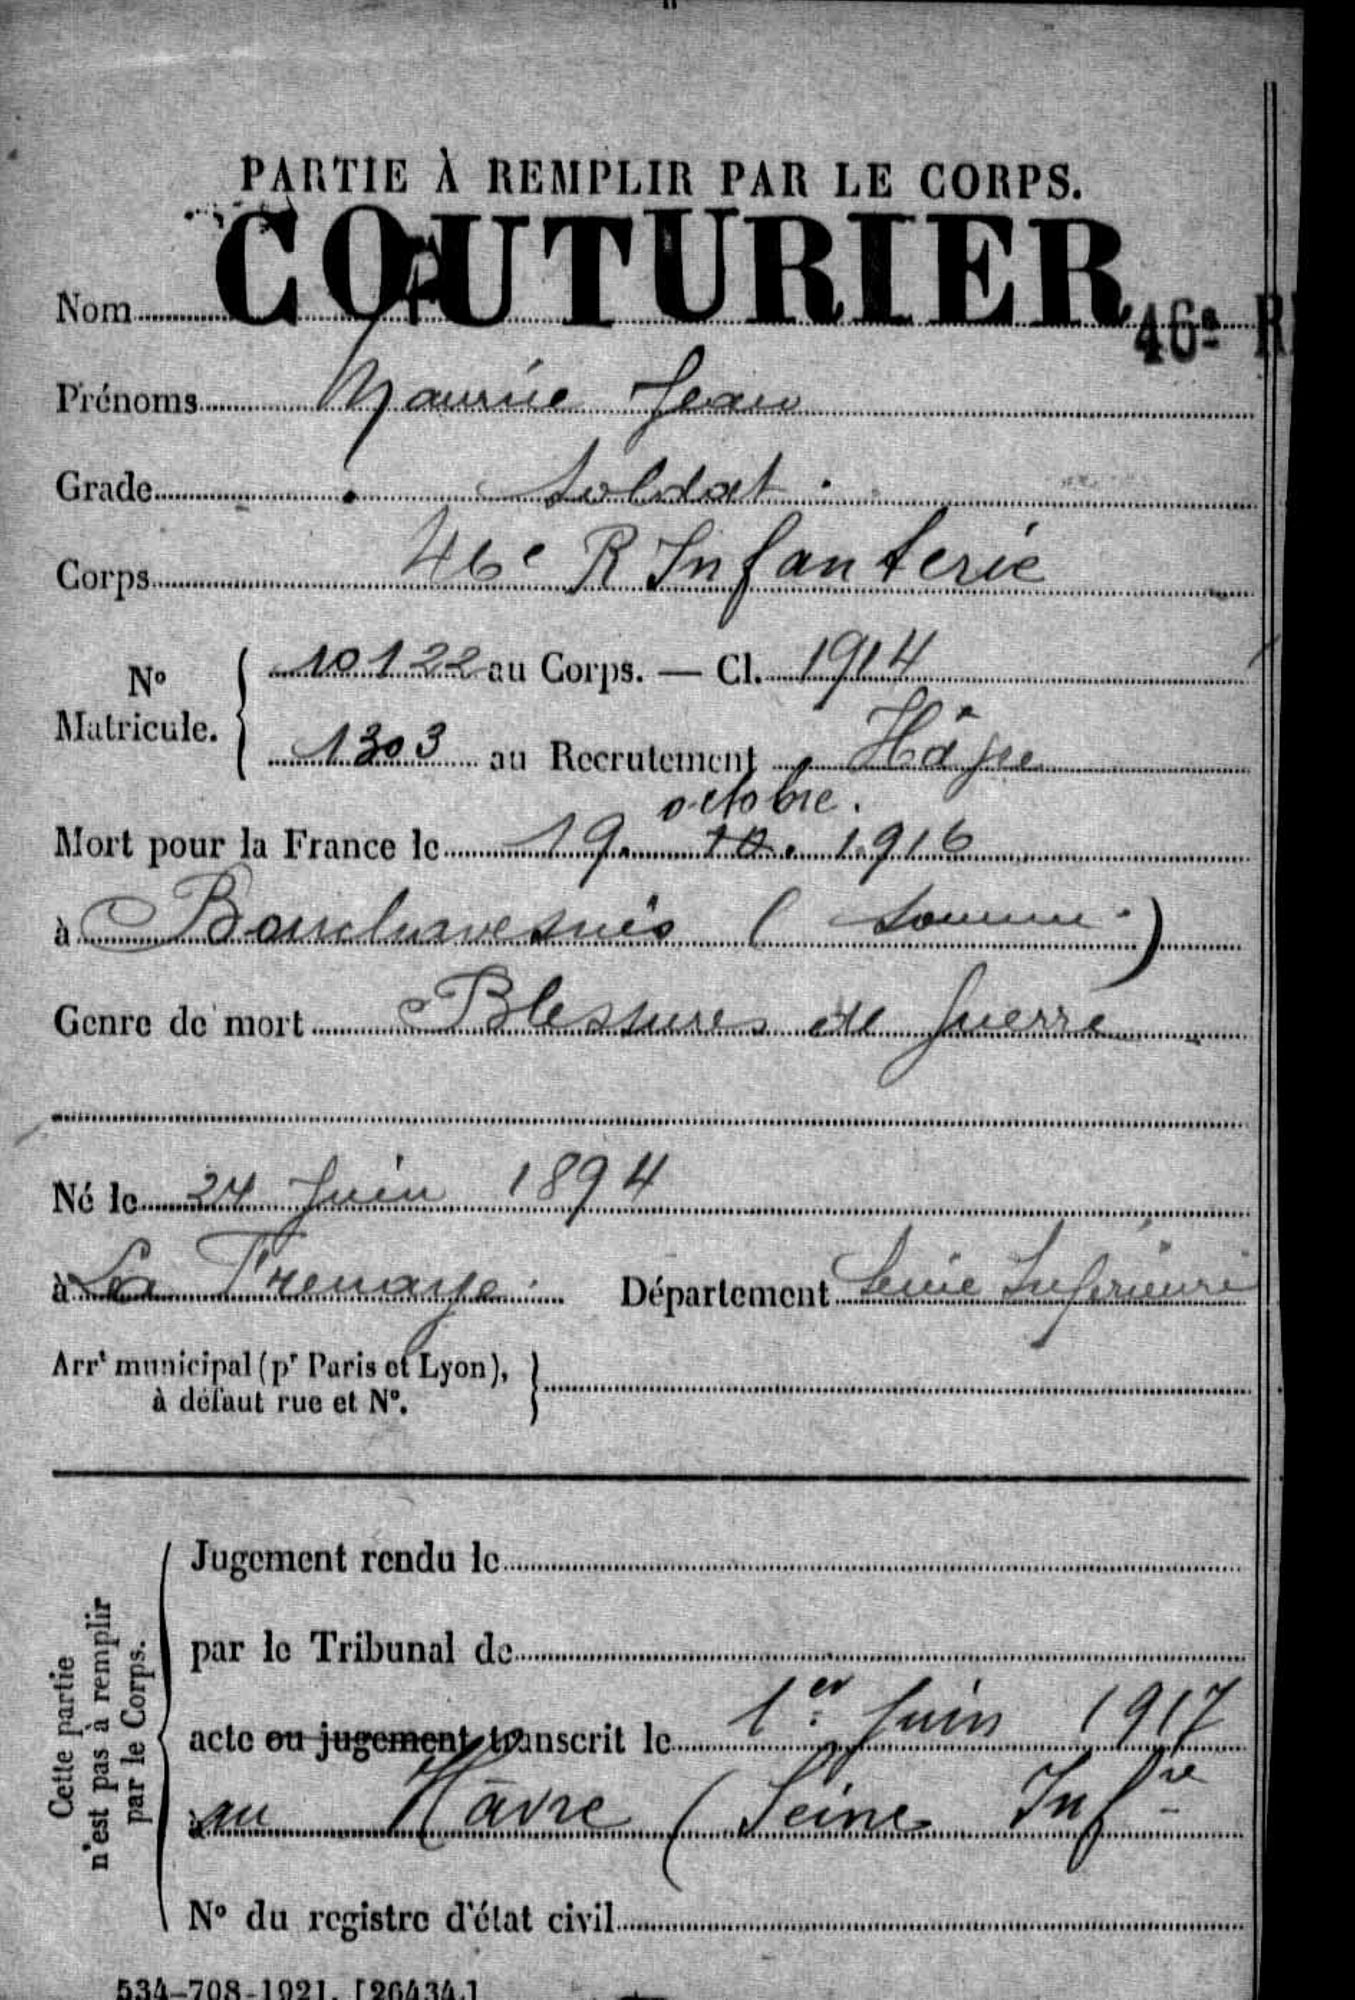 PARTIE À REMPLIR PAR LE CORPS.
Nom COUTURIER
46e R
Prénoms Maurice Jean
Grade Soldat
Corps 46e R Infanterie
No Matricule. 10122 au Corps. — Cl. 1914
1303 au Recrutement Hâvre
octobre.
Mort pour la France le 19. 10. 1916
à Bouchavesnes (Somme)
Genre de mort Blessures de guerre
Né le 24 Juin 1894
à La Frenaye. Département Seine Inférieure
Arrt municipal (pr Paris et Lyon),
à défaut rue et No.
Cette partie
n'est pas à remplir
par le Corps.
Jugement rendu le
par le Tribunal de
acte ou jugement transcrit le 1er Juin 1917
au Hâvre (Seine Infre
No du registre d'état civil
534-708-1921. [26434.]